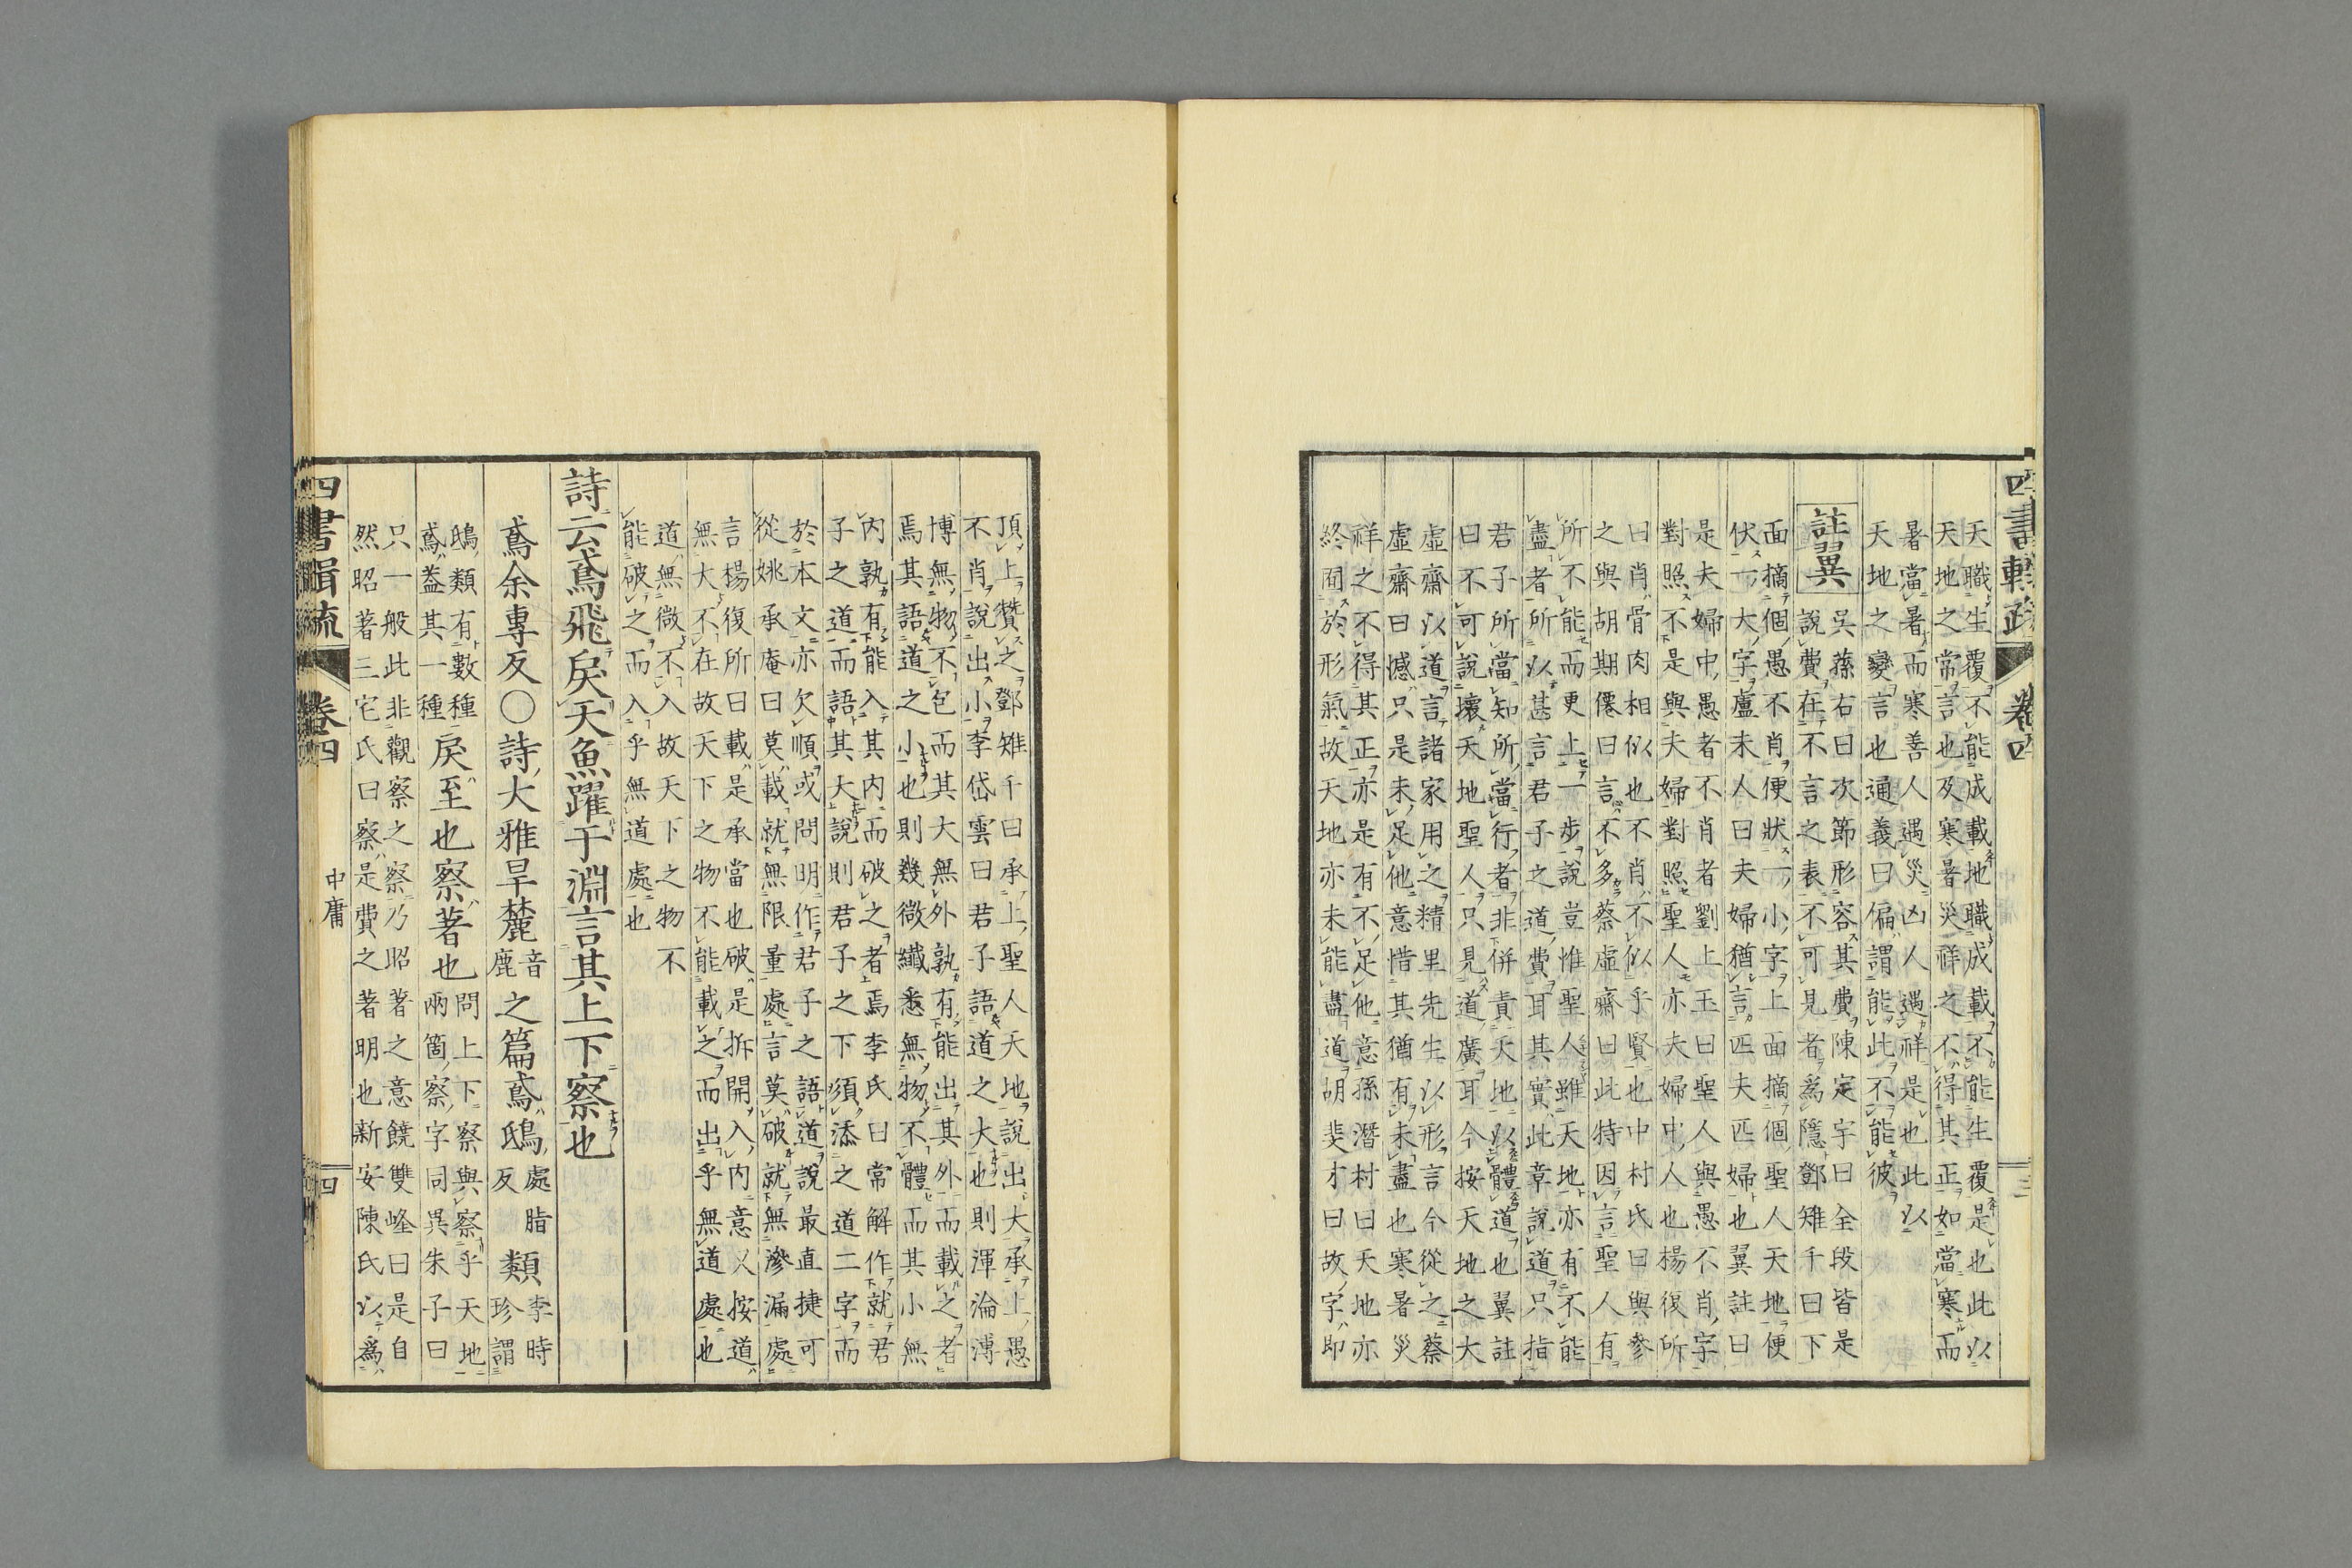 天職生覆不能成載地職成載不能生覆是也此以
天地之常言也及寒暑災祥之不得其正如當寒而
暑當暑而寒善人遇災凶人遇祥是也此以
天地之變言也通義曰偏謂能此不能彼
註翼
吳蓀右曰次節形容其費陳定宇曰全段皆是
說費在不言之表不可見者爲隱鄧雉千曰下
面摘個愚不肖便狀一小字上面摘個聖人天地便
伏一大字盧未人曰夫婦猶言匹夫匹婦也翼註曰
是夫婦中愚者不肖者劉上玉曰聖人與愚不肖字
對照不是與夫婦對照聖人亦夫婦中人也楊復所
曰肖骨肉相似也不肖不似乎賢也中村氏曰與參
之與胡期僊曰言不多蔡虛齋曰此特因言聖人有
所不能而更上一步說豈惟聖人雖天地亦有不能
盡者所以甚言君子之道費耳其實此章說道只指
君子所當知所當行者非併責天地以體道也翼註
曰不可說壞天地聖人只見道廣耳今按天地之大
虛齋以道言諸家用之精里先生以形言今從之蔡
虛齋曰憾只是未足他意惜其猶有未盡也寒暑災
祥之不得其正亦是有不足他意孫潛村曰天地亦
終囿於形氣故天地亦未能盡道胡斐才曰故字即
四書輯疏
卷四
三
頂上贊之鄧雉千曰承上聖人天地說出大承上愚
不肖說出小李岱雲曰君子語道之大也則渾淪溥
博無物不包而其大無外孰有能出其外而載之者
焉其語道之小也則幾微纖悉無物不體而其小無
內孰有能入其內而破之者焉李氏曰常解作就君
子之道而語其大說則君子之下須添之道二字而
於本文亦欠順或問明作君子之語道說最直捷可
從姚承庵曰莫載就無限量處言莫破就無滲漏處
言楊復所曰載是承當也破是拆開入內意以按道
無大不在故天下之物不能載之而出乎無道處也
道無微不入故天下之物不
能破之而入乎無道處也
詩云鳶飛戾天魚躍于淵言其上下察也
鳶余專反○詩大雅旱麓音鹿之篇鳶鴟處脂反類李時珍謂
鴟類有數種鳶蓋其一種戾至也察著也問上下察與察乎天地兩箇察字同異朱子曰
只一般此非觀察之察乃昭著之意饒雙峰曰是自
然昭著三宅氏曰察是費之著明也新安陳氏以爲
四書輯疏
卷四
中庸
四